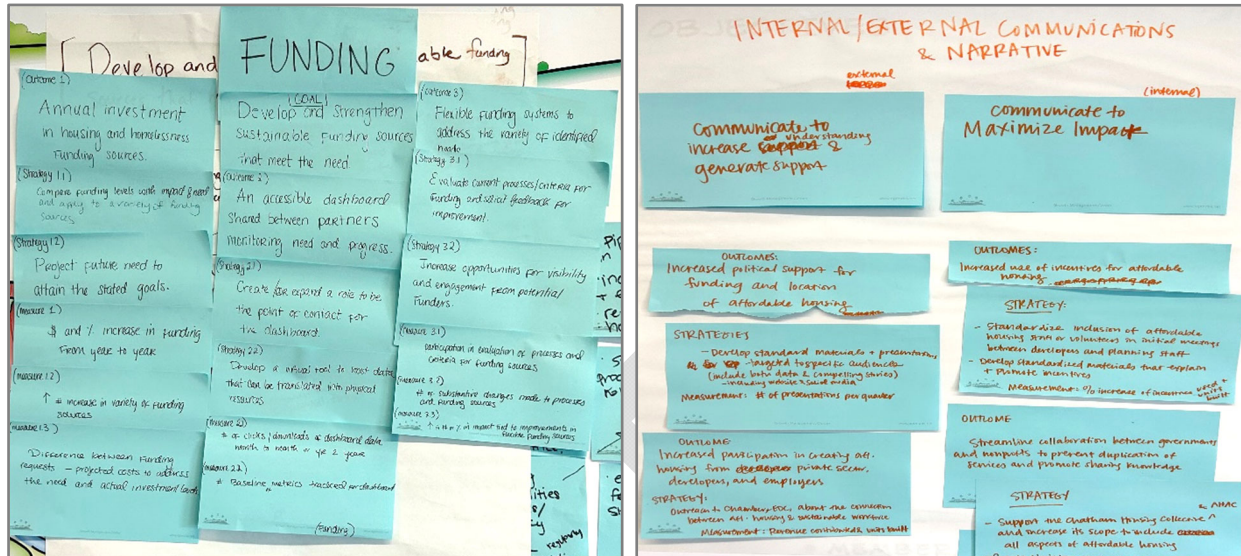 [Develop and
able funding]
FUNDING
(Outcome 1)
Annual investment
in housing and homelessness
Funding sources.
(Strategy 1.1)
Compare funding levels with impact & need
and apply to a variety of funding
sources
(Strategy 1.2)
Project future need to
attain the stated goals.
(measure 1.)
$ and % increase in funding
From year to year
(measure 1.2)
↑ # increase in variety of Funding
sources
(measure 1.3
Difference between Funding
requests – projected costs to address
the need and actual investment levels
(GOAL)
Develop and strengthen
Sustainable Funding sources
that meet the need
(outcome 2)
An accessible dashboard
shared between partners
monitoring need and progress.
(Strategy 2.1)
Create / expand a role to be
the point of contact for
the dashboard.
(Strategy 2.2)
Develop a visual tool to host data
that can be translated with physical
resources
(measure 2.1)
# of clicks/downloads of dashboard data
month to month or yr 2 year
(measure 2.2)
# Baseline metrics tracked for dashboard
(Funding)
(outcome 3
Flexible funding systems to
address the variety of identified
needs
(Strategy 3.1)
Evaluate current processes/criteria for
Funding and solicit feedback for
improvement.
(Strategy 3.2)
Increase opportunities for visibility
and engagement from potential
Funders.
(measure 3.1)
participation in evaluation of processes and
criteria for funding sources
(measure 3.2
# of substantive changes made to processes
and funding sources
(measure 3.3)
in impact tied to improvements in
Funding sources
INTERNAL/EXTERNAL COMMUNICATIONS
& NARRATIVE
external
communicate to
increase understanding &
generate support
OUTCOMES:
Increased political support for
funding and location
of affordable housing
STRATEGIES
- Develop standard materials + presentations
targeted to specific audiences
(include both data & compelling stories)
- including website & social media
Measurement: # of presentations per quarter
OUTCOME
Increased participation in creating aff.
housing from private sector,
developers, and employers
STRATEGY:
Outreach to Chamber, EDC, about the connection
between aff. housing & sustainable workforce
Measurement: Revenue contributed & units built
(internal)
communicate to
Maximize Impact
OUTCOMES:
Increased use of incentives for affordable
housing
STRATEGY:
- Standardize inclusion of affordable
housing staff or volunteers in initial meetings
between developers and planning staff
- Develop standardized materials that explain
+ promote incentives
Measurement: % increase of incentives used +
built
OUTCOME
Streamline collaboration between governments
and nonprofits to prevent duplication of
services and promote sharing knowledge
STRATEGY
- Support the Chatham Housing Collective ^ & AHAC
and increase its scope to include
all aspects of affordable housing